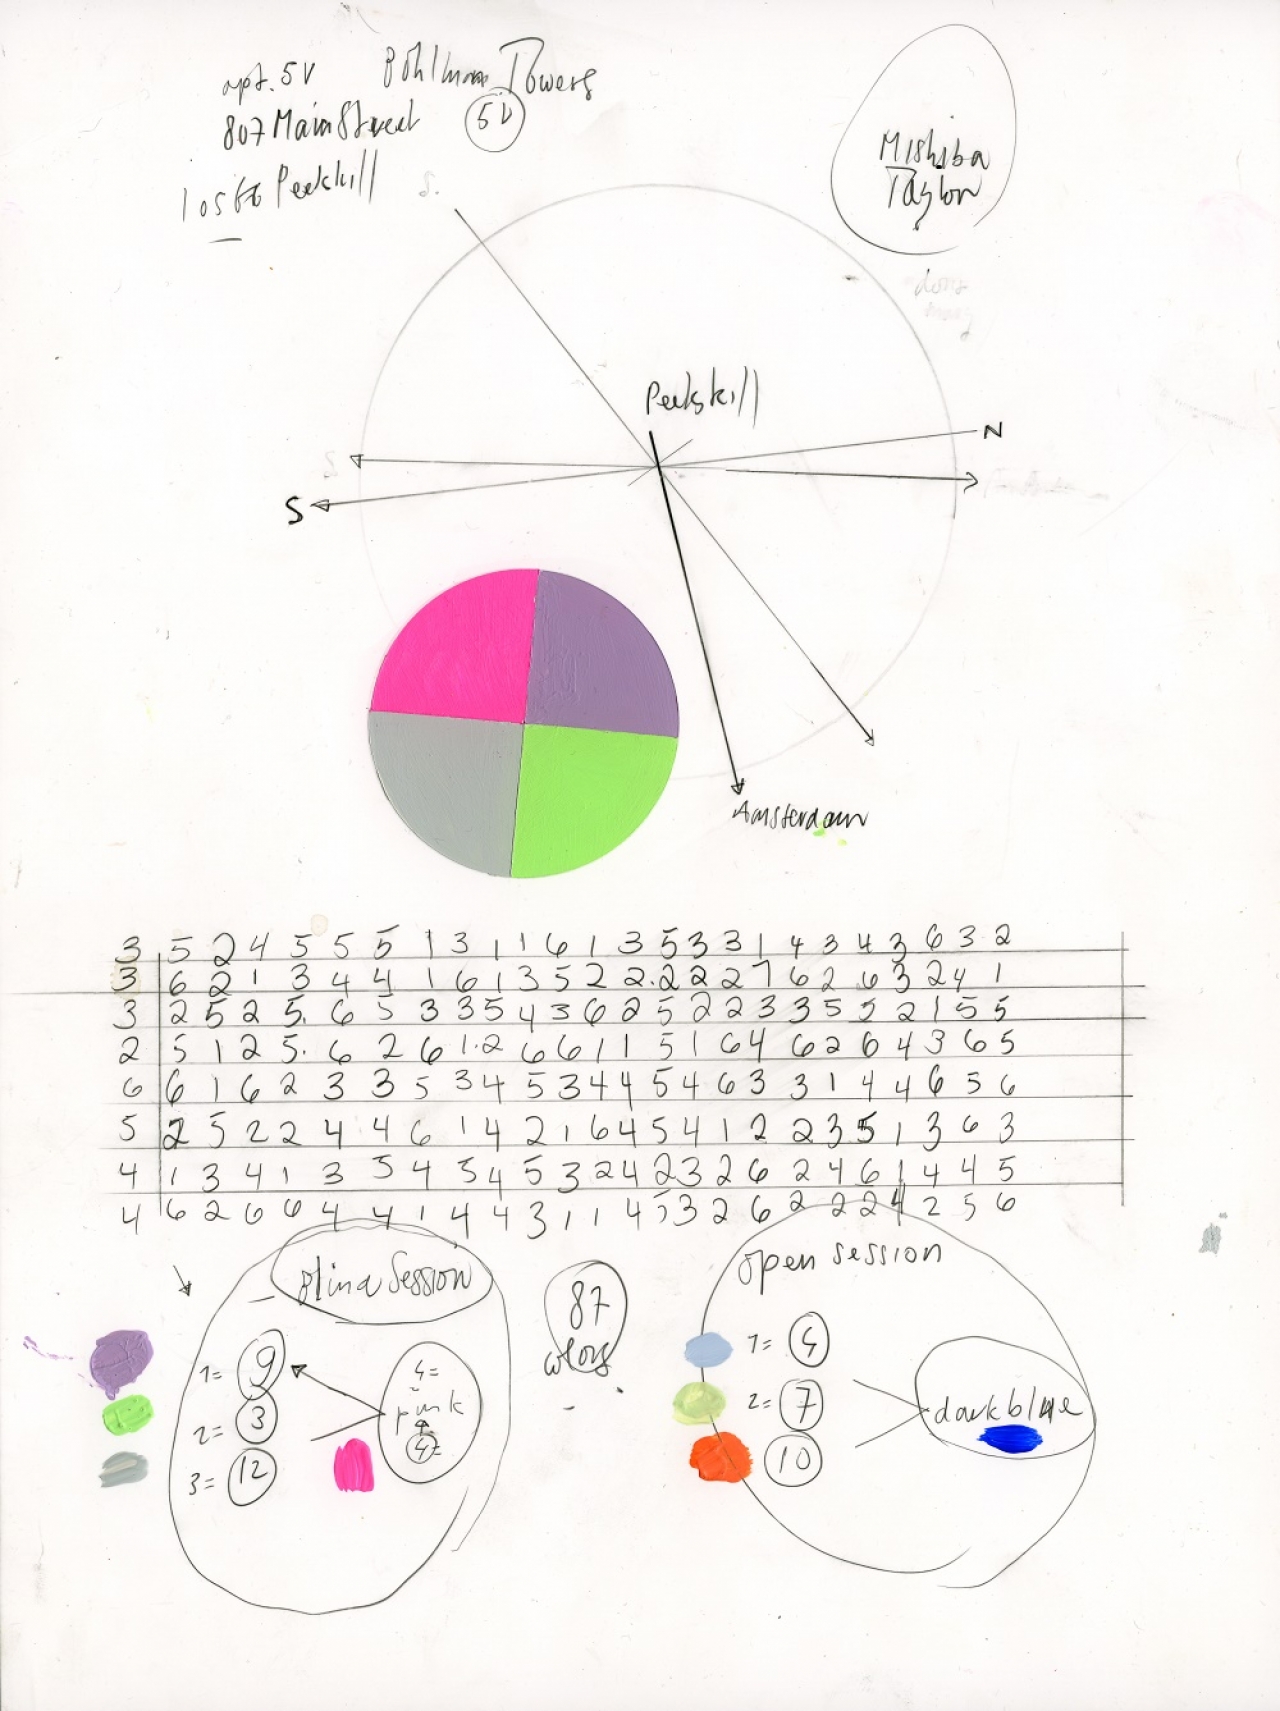 apt. 5V Bohlman Towers
807 Main Street 5V
10566 Peekskill
Mishiba
Taylor
Peekskill
N
S
Amsterdam
3 5 2 4 5 5 5 1 3 1 1 6 1 3 5 3 3 1 4 3 4 3 6 3 2
3 6 2 1 3 4 4 1 6 1 3 5 2 2 2 2 2 7 6 2 6 3 2 4 1
3 2 5 2 5 6 5 3 3 5 4 3 6 2 5 2 2 3 3 5 5 2 1 5 5
2 5 1 2 5 6 2 6 1 2 6 6 1 1 5 1 6 4 6 2 6 4 3 6 5
6 6 1 6 2 3 3 5 3 4 5 3 4 4 5 4 6 3 3 1 4 4 6 5 6
5 2 5 2 2 4 4 6 1 4 2 1 6 4 5 4 1 2 2 3 5 1 3 6 3
4 1 3 4 1 3 5 4 5 4 5 3 2 4 2 3 2 6 2 4 6 1 4 4 5
4 6 2 6 6 4 4 1 4 4 3 1 1 4 5 3 2 6 2 2 2 4 2 5 6
Blind Session
87
colors
open session
1= 9
2= 3
3= 12
4=
pink
4=
1= 4
2= 7
10
dark blue